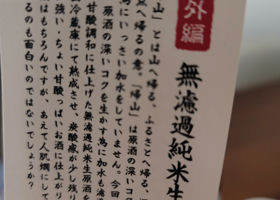 外編
無濾過純米生
山」とは山へ帰る、ふるさとへ帰る、
点へ帰るの意。「帰山」は原酒の深いコク
にいっさい加水をしていません。今回
原酒の深いコクを生かす為に加水も濾過
甘酸調和に仕上げた無濾過純米生原酒を
冷蔵庫にて熟成させ、炭酸感が少し残り
強い・ちょい甘酸っぱいお酒に仕上がり
はもちろんですが、あえて人肌燗にして
るのも面白いのではないでしょうか?